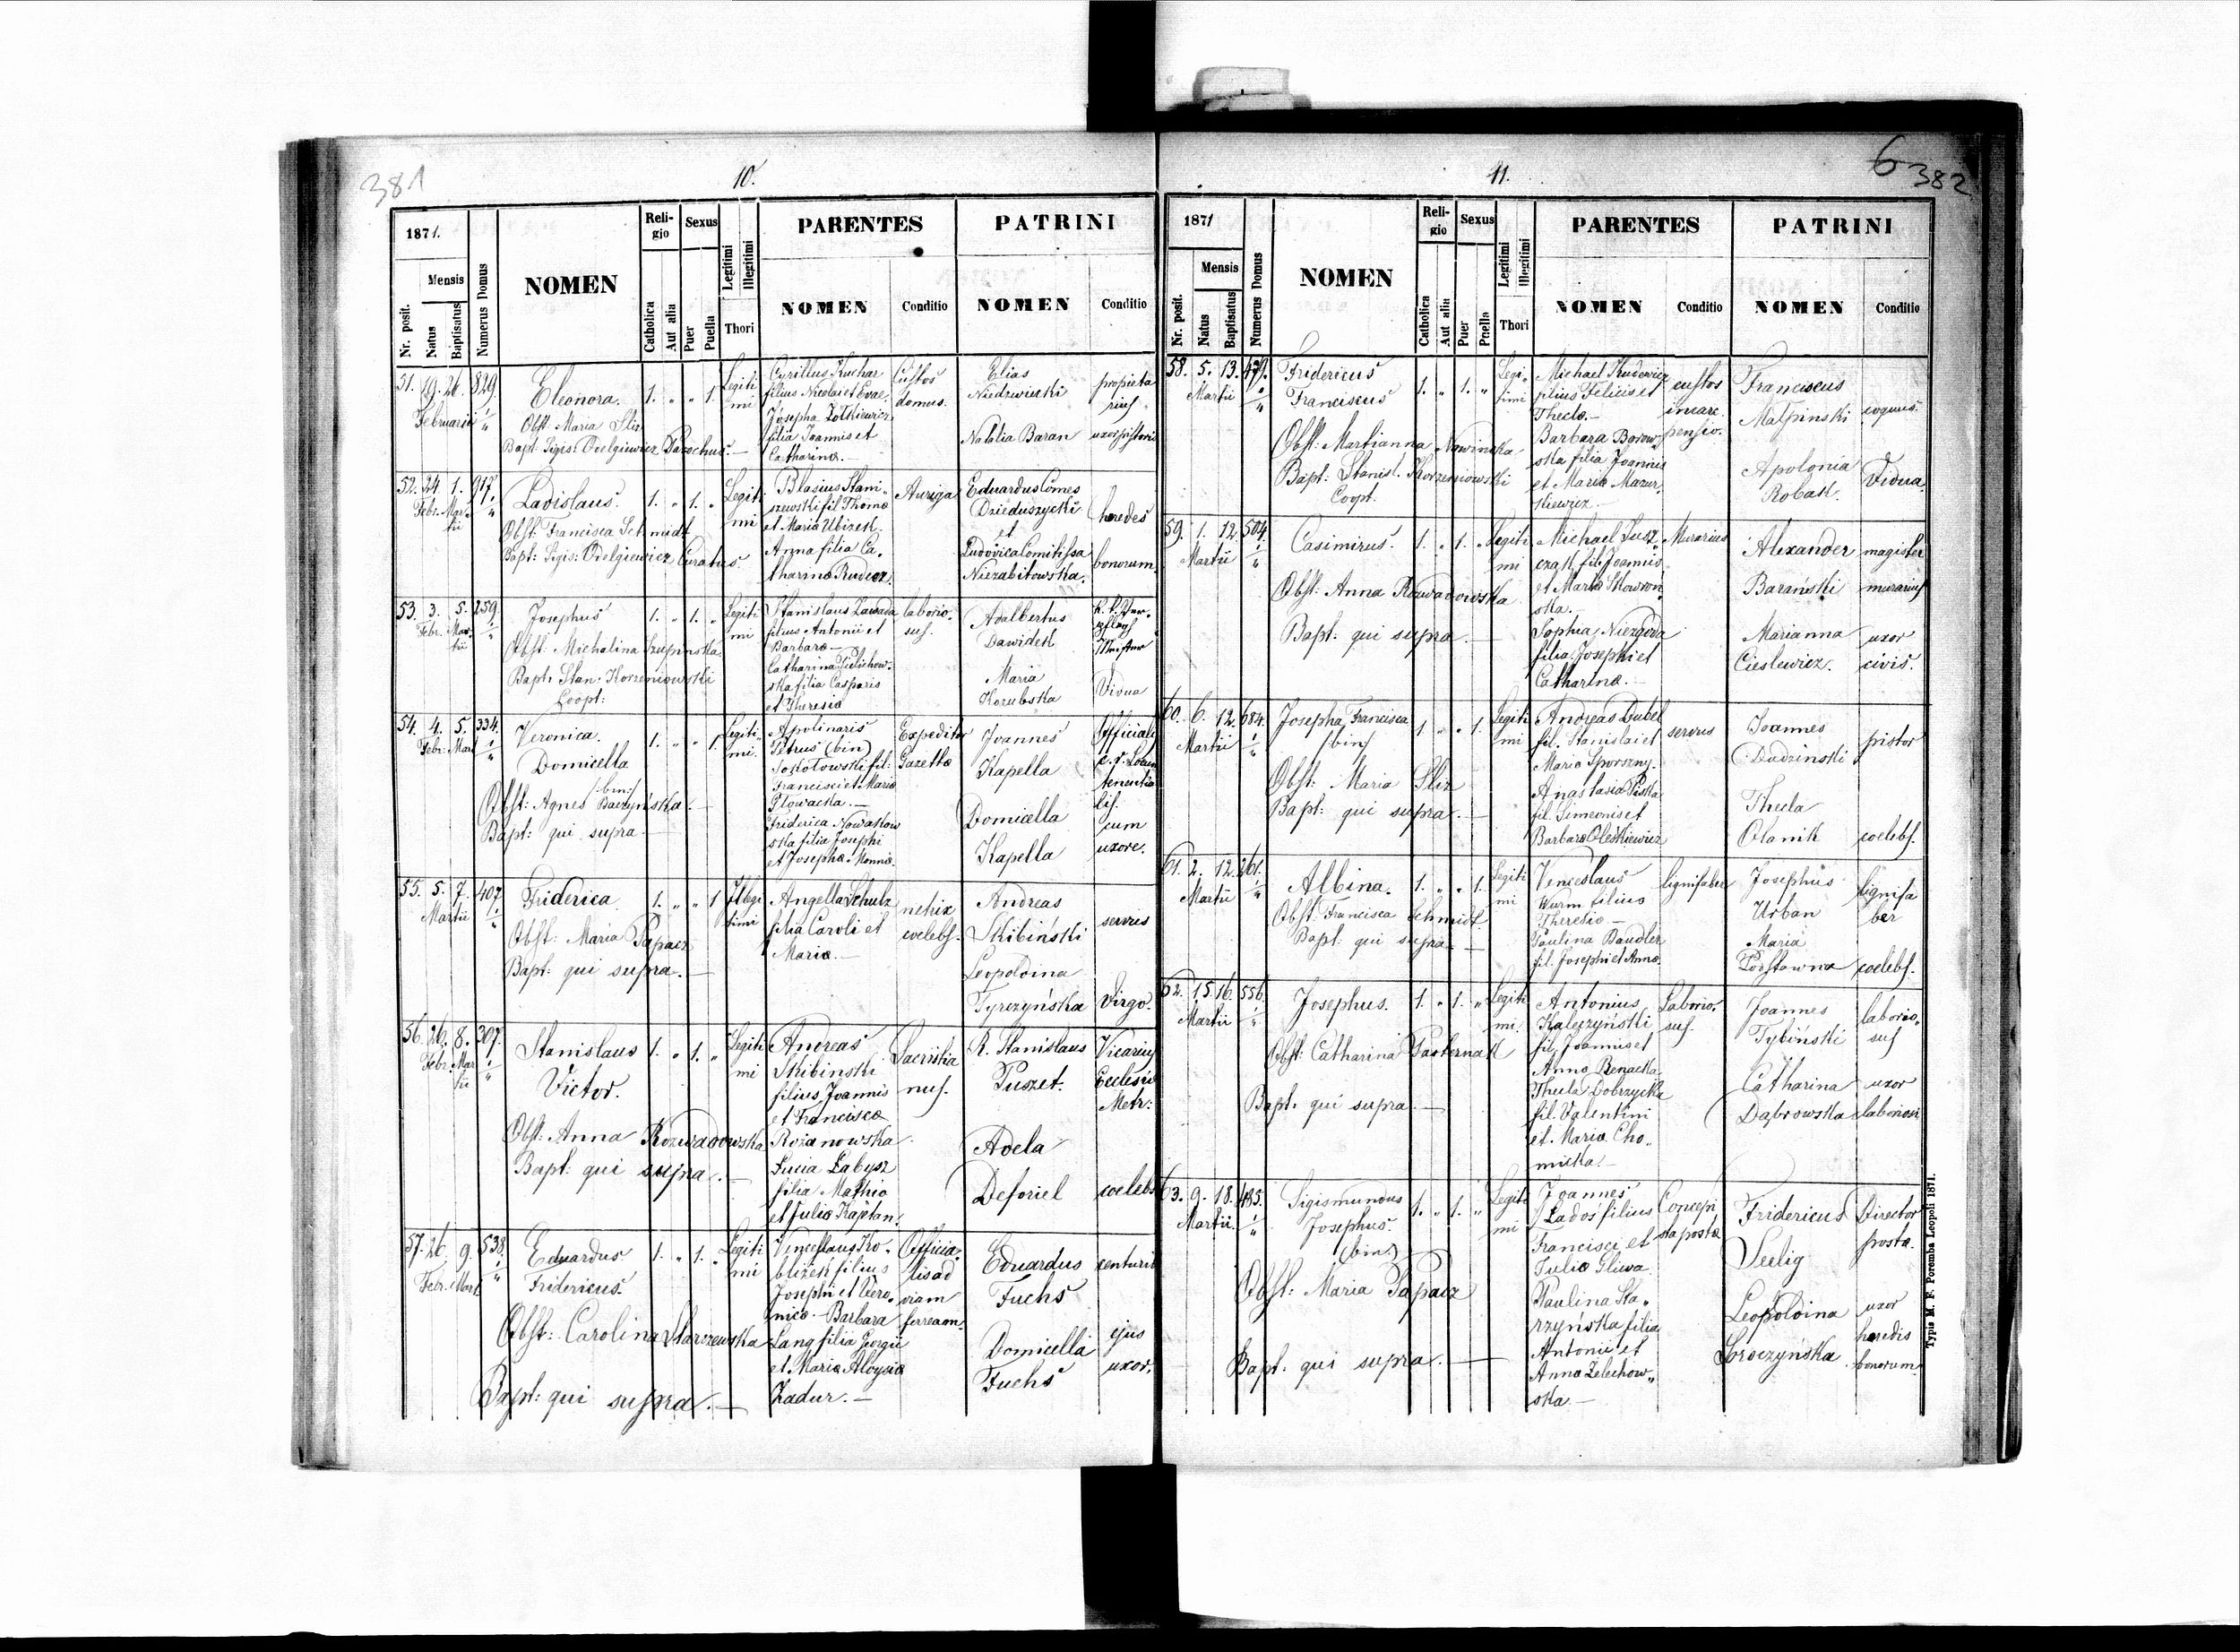 381
10.
1871.
Mensis
Nr. posit.
Natus
Baptisatus
Numerus Domus
NOMEN
Reli-
gio
Catholica
Aut alia
Sexus
Puer
Puella
Legitimi
Illegitimi
Thori
PARENTES
NOMEN
Conditio
PATRINI
NOMEN
Conditio
51. 19. 26. 829.
Februarii
Eleonora.
Obst: Maria Sliz
Bapt: Sigis: Odelgiewicz Parochus.
1. " " 1.
Legiti
mi
Cyrillus Kuchar
filius Nicolai et Evae.
Josepha Zolkiewicz
filia Joannis et
Catharinæ.
Custos
domus.
Elias
Niedzwiecki
Natalia Baran
proprieta
rius
uxor pistoris
52. 24 1. 917.
Febr. Mar
tii
Ladislaus.
Obst: Francisca Schmidt
Bapt: Sigis: Odelgiewicz Curatus
1. " 1. "
Legiti
mi
Blasius Stani
szewski fil Thomæ
et Maria Ubizek.
Anna filia Ca
tharinæ Rudecz.
Auriga
Eduardus Comes
Dzieduszycki
et
Ludovica Comitissa
Niezabitowska.
hæredes
bonorum.
53. 3. 5. 259.
Febr. Mar
tii
Josephus
Obst: Michalina Szupinska
Bapt. Stan. Korzeniowski
Coopt:
1. " 1. "
Legiti
mi
Stanislaus Zawada
filius Antonii et
Barbaræ
Catharina
ska filia Casparis
et Theresiæ
laborio
sus.
Adalbertus
Dawidek
Maria
Kozubska
Vidua
54. 4. 5. 334.
Febr. Mart
Veronica.
Domicella
(bin)
Obst: Agnes Baczyńska.
Bapt: qui supra.
1. " " 1.
Legiti
mi.
Apolinaris
Petrus (bin)
Sokołowski fil:
Francisci et Mariæ
Głowacka.
Friderica Nowakow
ska filia Josephi
et Josephæ
Expeditor
Gazettæ
Joannes
Kapella
Domicella
Kapella
Officialis
c. r. Locum
tenentia
lis.
cum
uxore.
55. 5. 7. 407
Martii
Friderica
Obst: Maria Papacz
Bapt: qui supra.
1. " " 1
Illegi
timi
Angella Schulz
filia Caroli et
Mariæ.
netrix
coelebs.
Andreas
Skibiński
Leopoldina
Tyrczyńska
servus
Virgo.
56. 26. 8. 307.
Febr. Mar
tii
Stanislaus
Victor.
Obst: Anna Rozwadowska
Bapt: qui supra.
1. " 1. "
Legiti
mi
Andreas
Skibinski
filius Joannis
et Franciscæ
Rozanowska
Lucia Labysz
filia Mathiæ
et Juliæ Kaptan.
Sacristia
nus.
R. Stanislaus
Puszet.
Adela
Deforiel
Vicarius
Ecclesiæ
Metr:
coelebs
57. 26. 9. 538.
Febr. Mart
Eduardus
Fridericus.
Obst: Carolina Starzewska
Bapt: qui supra.
1. " 1. "
Legiti
mi
Venceslaus Ko
blizek filius
Josephi et Vero
nicæ. Barbara
Lang filia Georgii
et Mariæ Aloysiæ
Zadur.
Officia
lis ad
viam
ferream.
Eduardus
Fuchs
Domicella
Fuchs
centurio
ejus
uxor.
6
382
11.
1871
Mensis
Nr. posit.
Natus
Baptisatus
Numerus Domus
NOMEN
Reli-
gio
Catholica
Aut alia
Sexus
Puer
Puella
Legitimi
Illegitimi
Thori
PARENTES
NOMEN
Conditio
PATRINI
NOMEN
Conditio
58. 5. 13.
Martii
Fridericus
Franciscus
Obst: Martianna Nowinska
Bapt: Stanisl. Korzeniowski
Coopt.
1. " 1. "
Legi
timi
Michael Rudewicz
filius Felicis et
Theclæ.
Barbara Borow
ska filia Joannis
et Mariæ Mazur
kiewicz.
custos
incarc.
pensio.
Franciscus
Malpinski
Apolonia
Robak.
coquus.
Vidua.
59. 1. 12. 504.
Martii
Casimirus.
Obst: Anna Rozwadowska
Bapt: qui supra.
1. " 1. "
Legiti
mi
Michael Susz
czak fil. Joannis
et Mariæ Skowron
ska.
Sophia Niezgoda
filia Josephi et
Catharinæ.
Murarius
Alexander
Barański
Marianna
Cieslewicz.
magister
murarius
uxor
civis.
60. 6. 12. 684.
Martii
Josepha Francisca
(bin)
Obst: Maria Sliz
Bapt: qui supra.
1 " " 1
Legiti
mi
Andreas Dubel
fil. Stanislai et
Mariæ Sporszny.
Anastasia Piska
fil. Simeonis et
Barbaræ Oleskiewicz
servus
Joannes
Dudzinski
Thecla
Olanik
pistor
coelebs.
61. 2. 12. 261.
Martii
Albina.
Obst: Francisca Schmidt.
Bapt: qui supra.
1. " " 1.
Legiti
mi
Venceslaus
Wurm filius
Theresiæ
Paulina Baudler
fil. Josephi et Annæ.
lignifaber
Josephus
Urban
Maria
Podstawna
lignifa
ber
coelebs.
62. 15. 16. 556.
Martii
Josephus.
Obst: Catharina Pasternak
Bapt. qui supra.
1. " 1. "
Legiti
mi.
Antonius
Kaleczyński
fil. Joannis et
Annæ Benacka.
Thecla Dobrzycka
fil. Valentini
et Mariæ Cho
micka.
Laborio
sus.
Joannes
Tybinski
Catharina
Dąbrowska
laborio
sus
uxor
laboriosi
63. 9. 18. 485.
Martii.
Sigismundus
Josephus.
(bin.)
Obst: Maria Papacz
Bapt: qui supra.
1. " 1. "
Legiti
mi
Joannes
Lados filius
Francisci et
Juliæ Gliwa
Paulina Sta
rzyńska filia
Antonii et
Annæ Zelechow
ska
Concepi
sta postæ
Fridericus
Seelig
Leopoldina
Soroczyńska
Director
postæ.
uxor
hæredis
bonorum.
Typis M. F. Poremba Leopoli 1871.